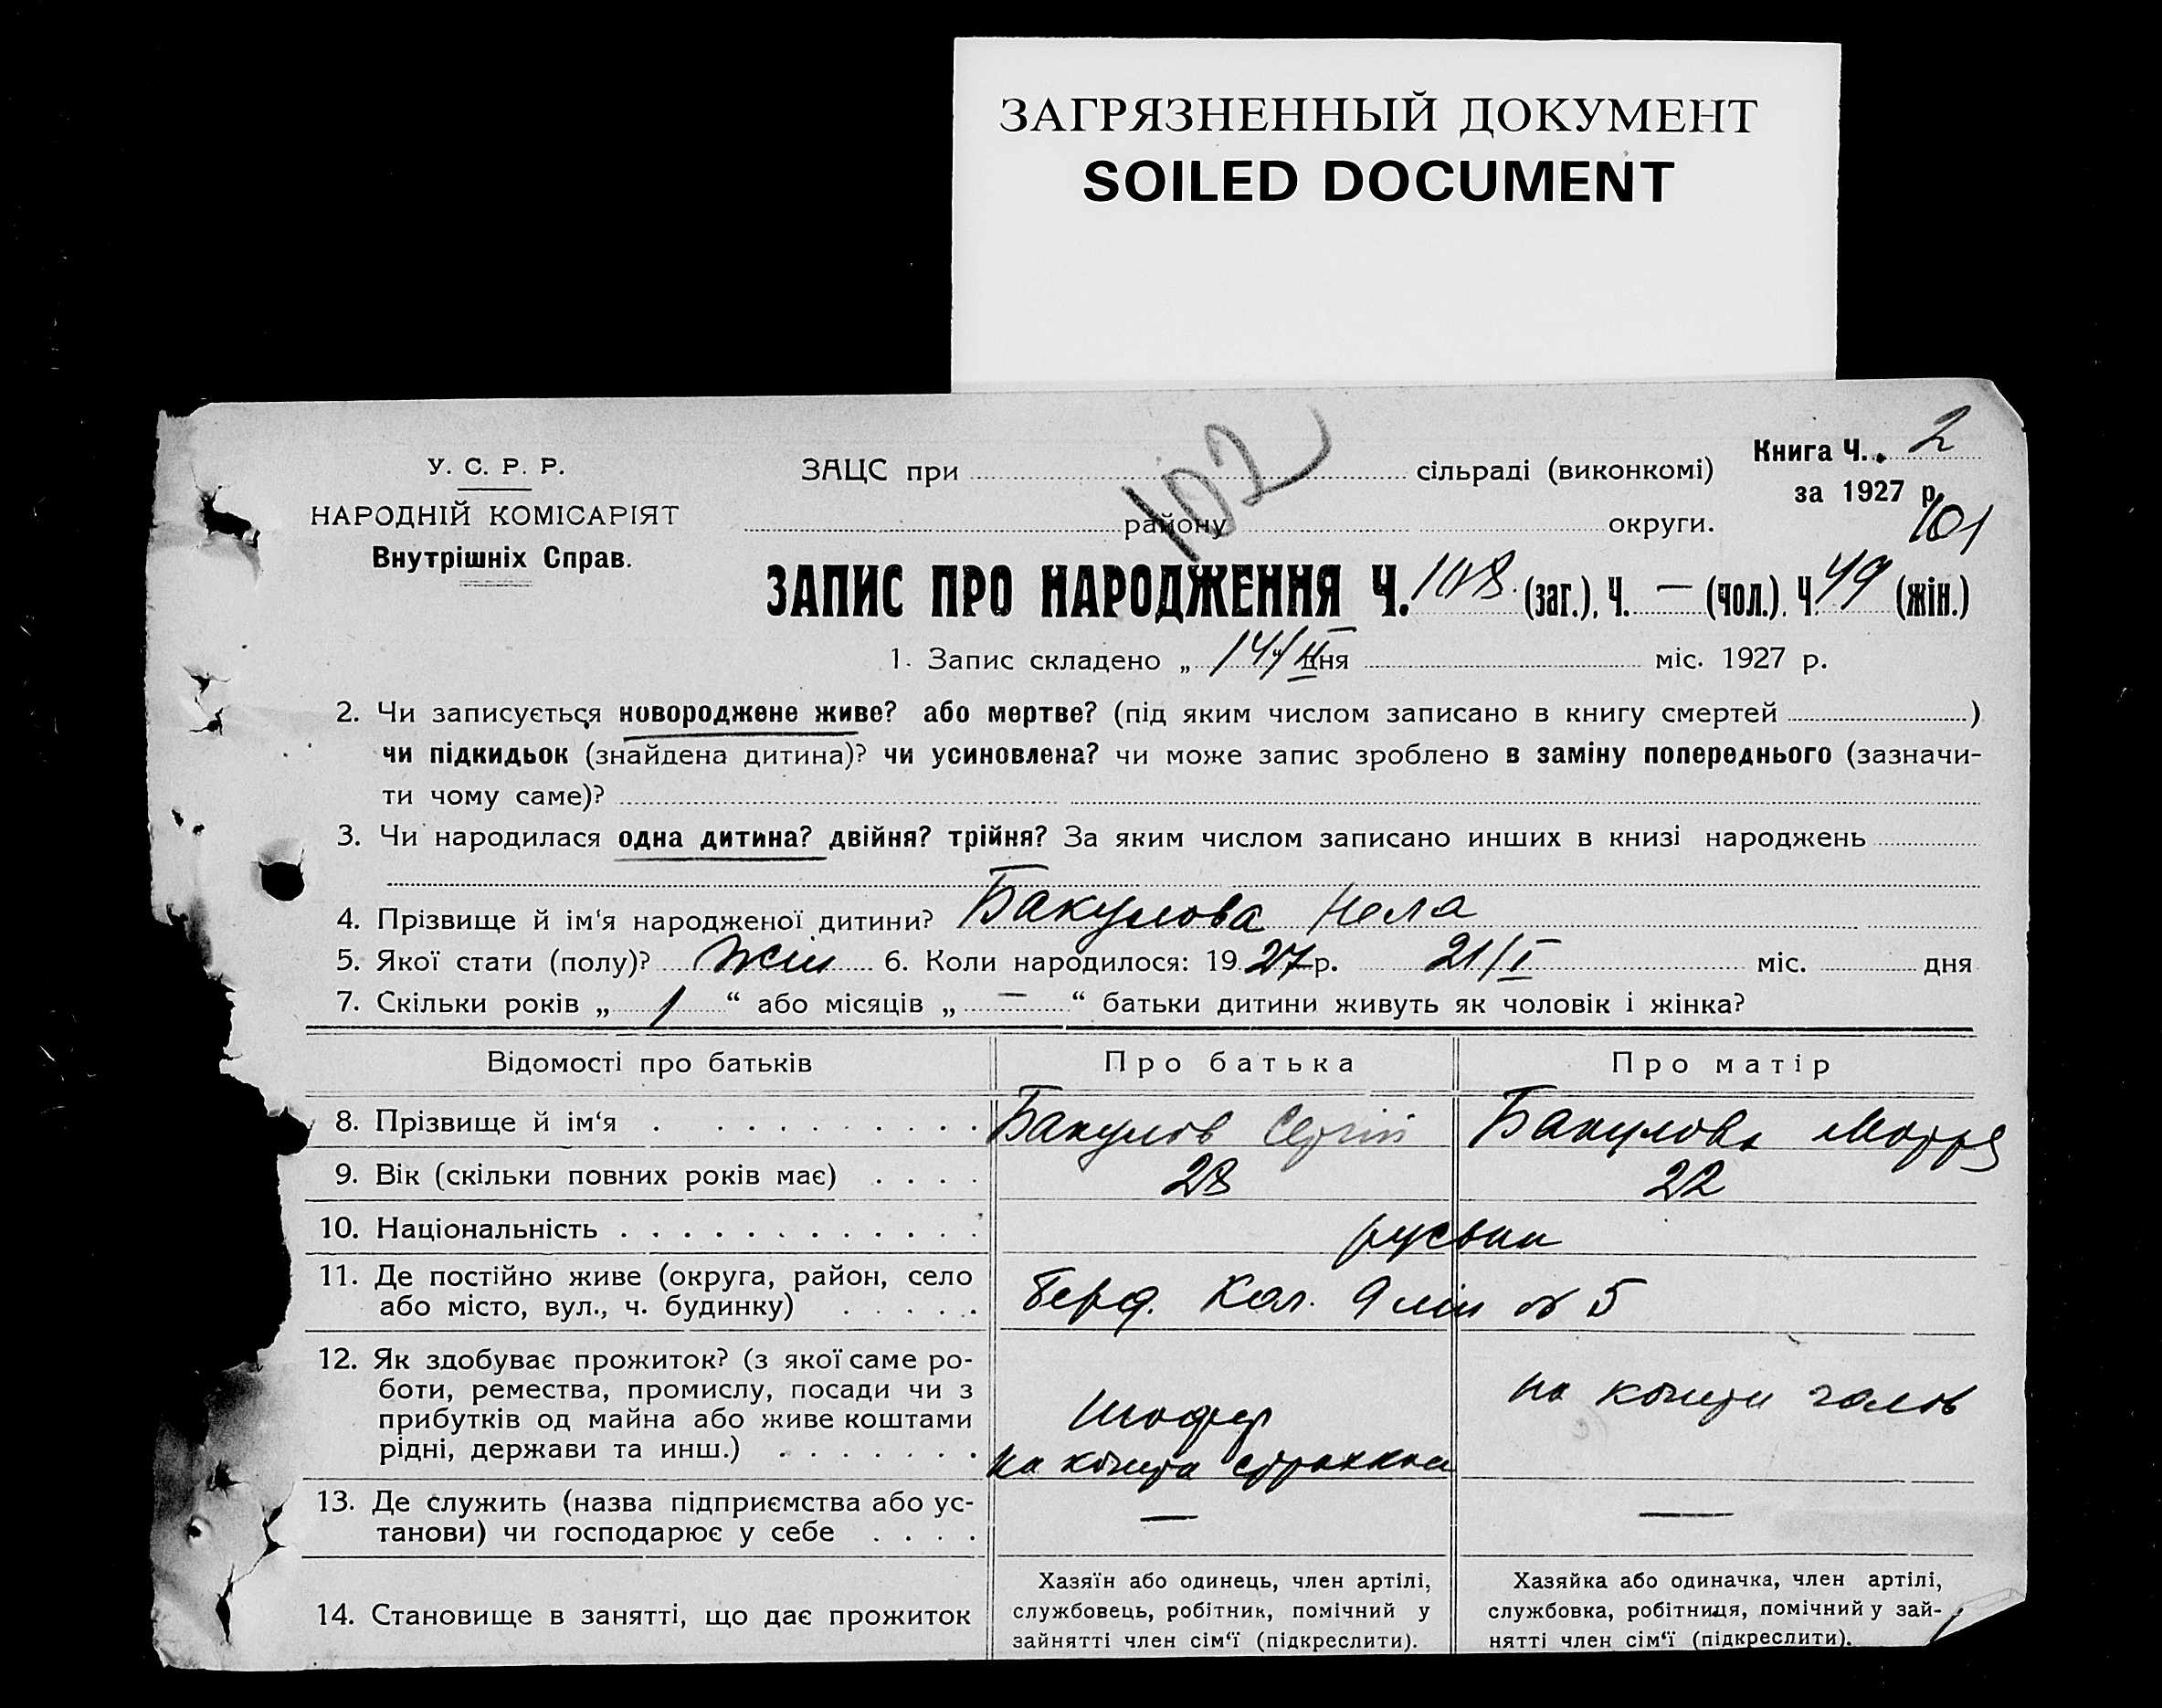 ЗАГРЯЗНЕННЫЙ ДОКУМЕНТ
SOILED DOCUMENT
102
У. С. Р. Р.
НАРОДНІЙ КОМІСАРІЯТ
Внутрішніх Справ.
ЗАЦС при сільраді (виконкомі)
району округи.
Книга Ч. 2
за 1927 р.
101
ЗАПИС ПРО НАРОДЖЕННЯ Ч. 108 (заг.), Ч. — (чол.). Ч. 49 (жін.)
1. Запис складено „ 14/II “ дня міс. 1927 р.
2. Чи записується новороджене живе? або мертве? (під яким числом записано в книгу смертей )
чи підкидьок (знайдена дитина)? чи усиновлена? чи може запис зроблено в заміну попереднього (зазначи-
ти чому саме)?
3. Чи народилася одна дитина? двійня? трійня? За яким числом записано инших в книзі народжень
4. Прізвище й ім'я народженої дитини? Бакулова Нела
5. Якої стати (полу)? жін 6. Коли народилося: 1927 р. 21/I міс. дня
7. Скільки років „ 1 “ або місяців „ — “ батьки дитини живуть як чоловік і жінка?
Відомості про батьків Про батька Про матір
8. Прізвище й ім‘я Бакулов Сергій Бакулова Мотря
9. Вік (скільки повних років має) 28 22
10. Національність
11. Де постійно живе (округа, район, село
або місто, вул., ч. будинку)
Берд. Кол. 9 лін № 5
12. Як здобуває прожиток? (з якої саме ро-
боти, ремества, промислу, посади чи з
прибутків од майна або живе коштами
рідні, держави та инш.)
шофер
на кошти
на кошти чолов
13. Де служить (назва підприємства або ус-
танови) чи господарює у себе
— —
14. Становище в занятті, що дає прожиток
Хазяїн або одинець, член артілі,
службовець, робітник, помічний у
зайнятті член сім‘ї (підкреслити).
Хазяйка або одиначка, член артілі,
службовка, робітниця, помічний у зай-
нятті член сім‘ї (підкреслити).